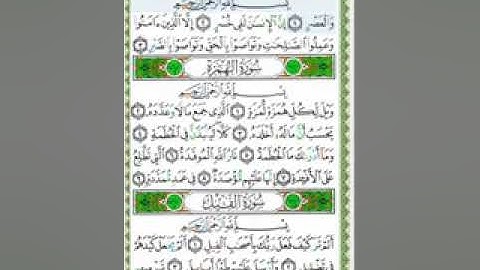 بسم الله الرحمن الرحيم
وَالْعَصْرِ ۝١ إِنَّ الْإِنسَانَ لَفِي خُسْرٍ ۝٢ إِلَّا الَّذِينَ ءَامَنُوا
وَعَمِلُوا الصَّالِحَاتِ وَتَوَاصَوْا بِالْحَقِّ وَتَوَاصَوْا بِالصَّبْرِ ۝٣
سُورَةُ الْهُمَزَةِ
بسم الله الرحمن الرحيم
وَيْلٌ لِّكُلِّ هُمَزَةٍ لُّمَزَةٍ ۝١ الَّذِي جَمَعَ مَالًا وَعَدَّدَهُ ۝٢
يَحْسَبُ أَنَّ مَالَهُ أَخْلَدَهُ ۝٣ كَلَّا لَيُنبَذَنَّ فِي الْحُطَمَةِ ۝٤
وَمَا أَدْرَاكَ مَا الْحُطَمَةُ ۝٥ نَارُ اللَّهِ الْمُوقَدَةُ ۝٦ الَّتِي تَطَّلِعُ
عَلَى الْأَفْئِدَةِ ۝٧ إِنَّهَا عَلَيْهِم مُّؤْصَدَةٌ ۝٨ فِي عَمَدٍ مُّمَدَّدَةٍ ۝٩
سُورَةُ الْفِيلِ
بسم الله الرحمن الرحيم
أَلَمْ تَرَ كَيْفَ فَعَلَ رَبُّكَ بِأَصْحَابِ الْفِيلِ ۝١ أَلَمْ يَجْعَلْ كَيْدَهُمْ
فِي تَضْلِيلٍ ۝٢ وَأَرْسَلَ عَلَيْهِمْ طَيْرًا أَبَابِيلَ ۝٣ تَرْمِيهِم